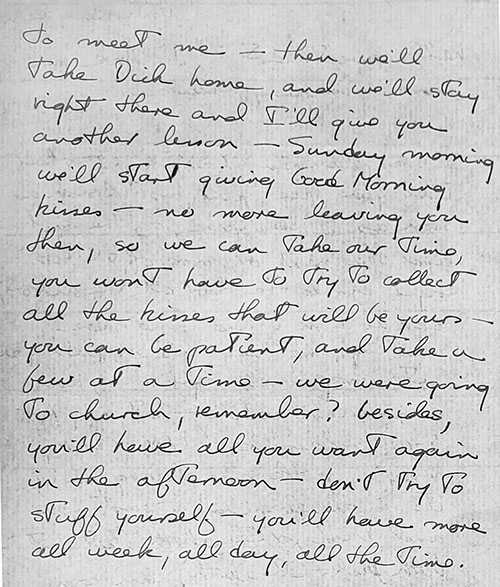 to meet me — then we'll
take Dick home, and we'll stay
right there and I'll give you
another lesson — Sunday morning
we'll start giving Good Morning
kisses — no more leaving you
then, so we can take our time,
you won't have to try to collect
all the kisses that will be yours —
you can be patient, and take a
few at a time — we were going
to church, remember? besides,
you'll have all you want again
in the afternoon — don't try to
stuff yourself — you'll have more
all week, all day, all the time.